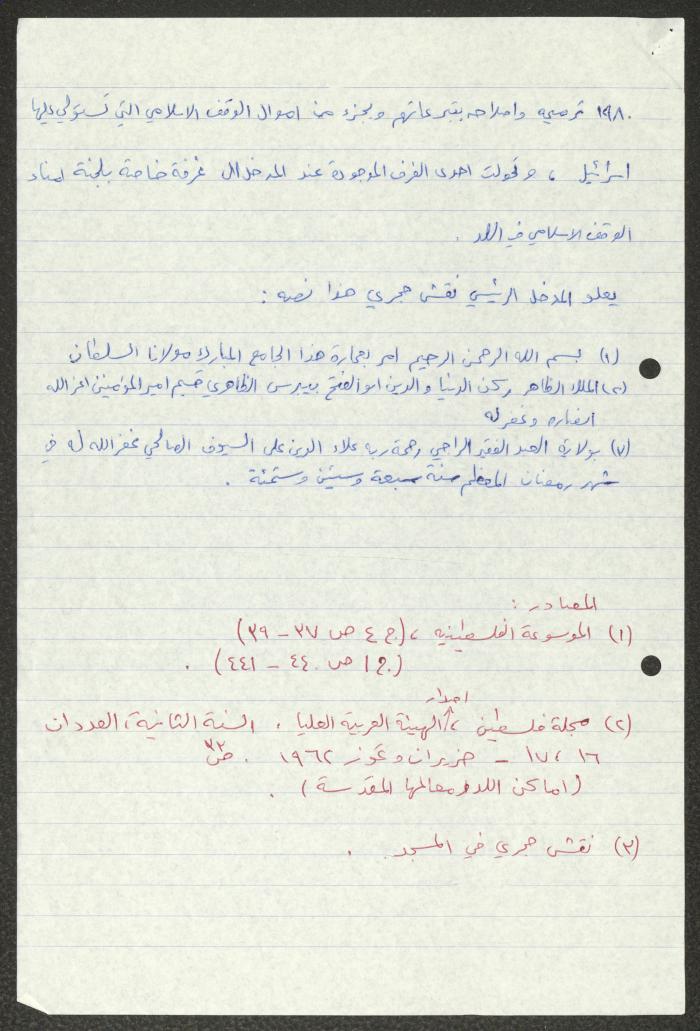 ١٩٨٠ ترميمه واصلاحه بتبرعاتهم وبجزء من اموال الوقف الاسلامي التي تستولي عليها
اسرائيل ، وتحولت احدى الغرف الموجودة عند المدخل ال غرفة خاصة بلجنة امناء
الوقف الاسلامي في اللد .
يعلو المدخل الرئيسي نقش حجري هذا نصه :
(١) بسم الله الرحمن الرحيم امر بعمارة هذا الجامع المبارك مولانا السلطان
(٢) الملك الظاهر ركن الدنيا والدين ابو الفتح بيبرس الظاهري قسيم امير المؤمنين اعز الله
انصاره وغفر له
(٧) بولاية العبد الفقير الراجي رحمة ربه علاء الدين علي السيوف الصالحي غفر الله له في
شهر رمضان المعظم سنة سبعة وستين وستمئة .
المصادر :
(١) الموسوعة الفلسطينيه ، (ج ٤ ص ٣٧ - ٣٩)
(ج ١ ص ٤٤٠ - ٤٤١) .
اصدار
(٢) مجلة فلسطين ، الهيئة العربية العليا ، السنة الثانية ، العددان
١٦ ، ١٧ - حزيران وتموز ١٩٦٢ . ص ٣٢
(اماكن اللد ومعالمها المقدسة) .
(٣) نقش حجري في المسجد .